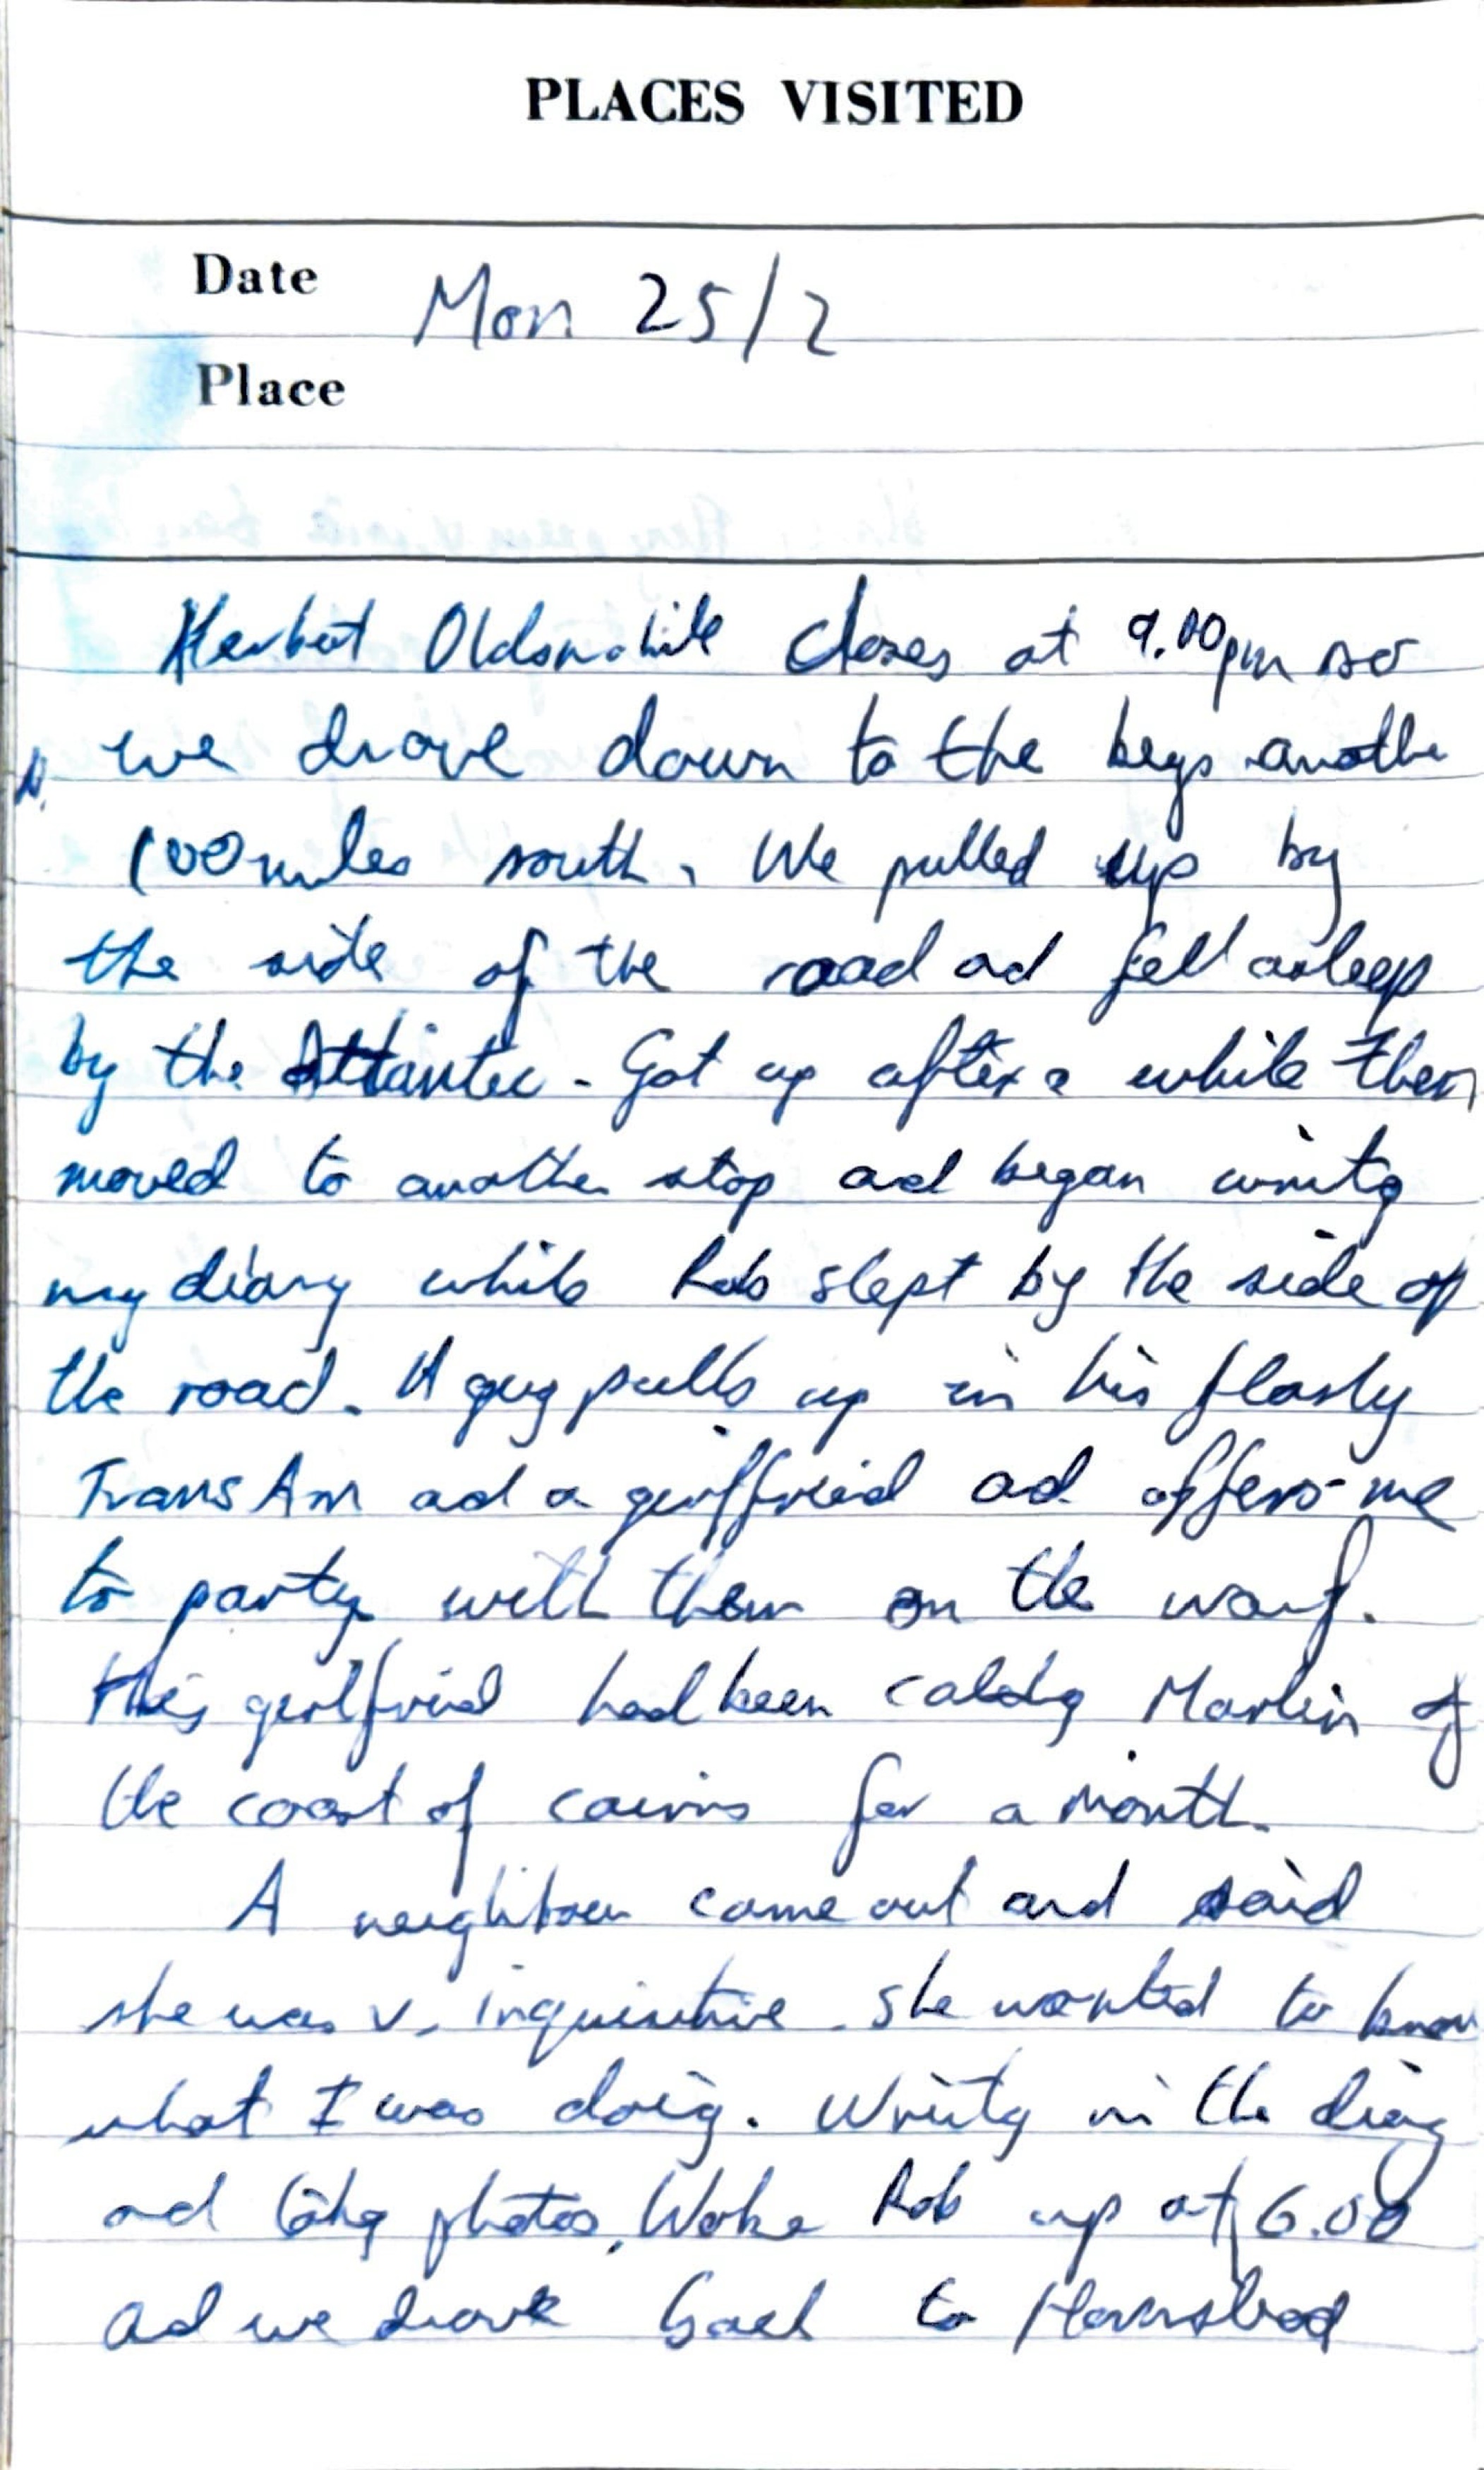 PLACES VISITED
Date Mon 25/2
Place
Herbert Oldsmobile closes at 9.00pm so
we drove down to the keys another
100 miles south. We pulled up by
the side of the road ad fell asleep
by the Attantic. Got up after a while then
moved to another stop ad began writg
my diary while Rob slept by the side of
the road. A guy pulls up in his flashy
Trans Am ad a girlfriend ad offers me
to party with them on the warf.
This girlfriend had been catchg Marlin of
the coast of cairns for a month.
A neighbour came out and said
she was v. inquisitive. She wanted to know
what I was doig. Writg in the diary
ad takg photos. Woke Rob up at 6.00
ad we drove back to